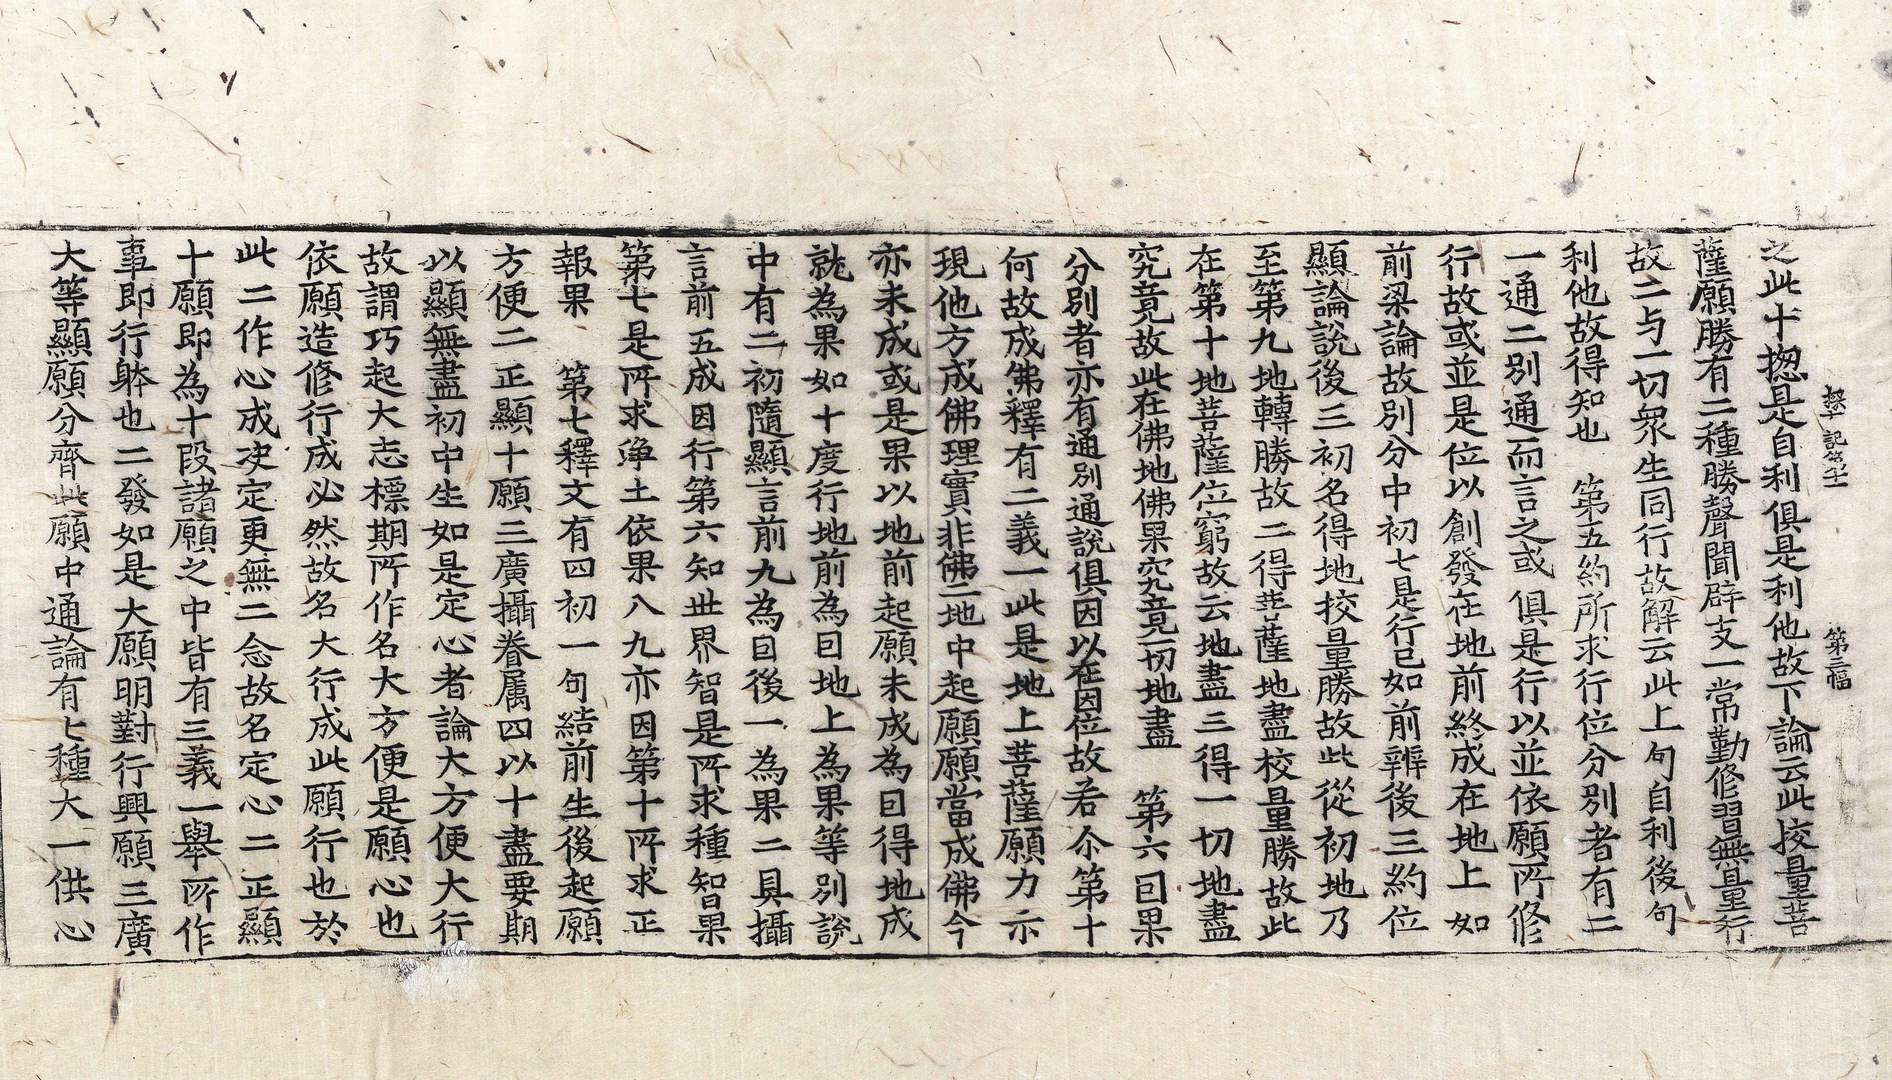 探十記卷土
第三幅
之此十揔是自利俱是利他故下論云此挍量菩
薩願勝有二種勝聲聞辟支一常勤修習無量行
故二与一切衆生同行故解云此上句自利後句
利他故得知也　第五約所求行位分別者有二
一通二別通而言之或俱是行以並依願所修
行故或並是位以創發在地前終成在地上如
前梁論故別分中初七是行已如前辨後三約位
顯論說後三初名得地挍量勝故此從初地乃
至第九地轉勝故二得菩薩地盡校量勝故此
在第十地菩薩位窮故云地盡三得一切地盡
究竟故此在佛地佛果究竟一切地盡　第六囙果
分別者亦有通別通說俱因以在因位故若尒第十
何故成佛釋有二義一此是地上菩薩願力示
現他方成佛理實非佛二地中起願願當成佛今
亦未成或是果以地前起願未成為囙得地成
就為果如十度行地前為囙地上為果等別說
中有二初隨顯言前九為囙後一為果二具攝
言前五成因行第六知世界智是所求種智果
第七是所求淨土依果八九亦因第十所求正
報果　第七釋文有四初一句結前生後起願
方便二正顯十願三廣攝眷属四以十盡要期
以顯無盡初中生如是定心者論大方便大行
故謂巧起大志標期所作名大方便是願心也
依願造修行成必然故名大行成此願行也於
此二作心成决定更無二念故名定心二正顯
十願即為十段諸願之中皆有三義一舉所作
事即行躰也二發如是大願明對行興願三廣
大等顯願分齊此願中通論有七種大一供心